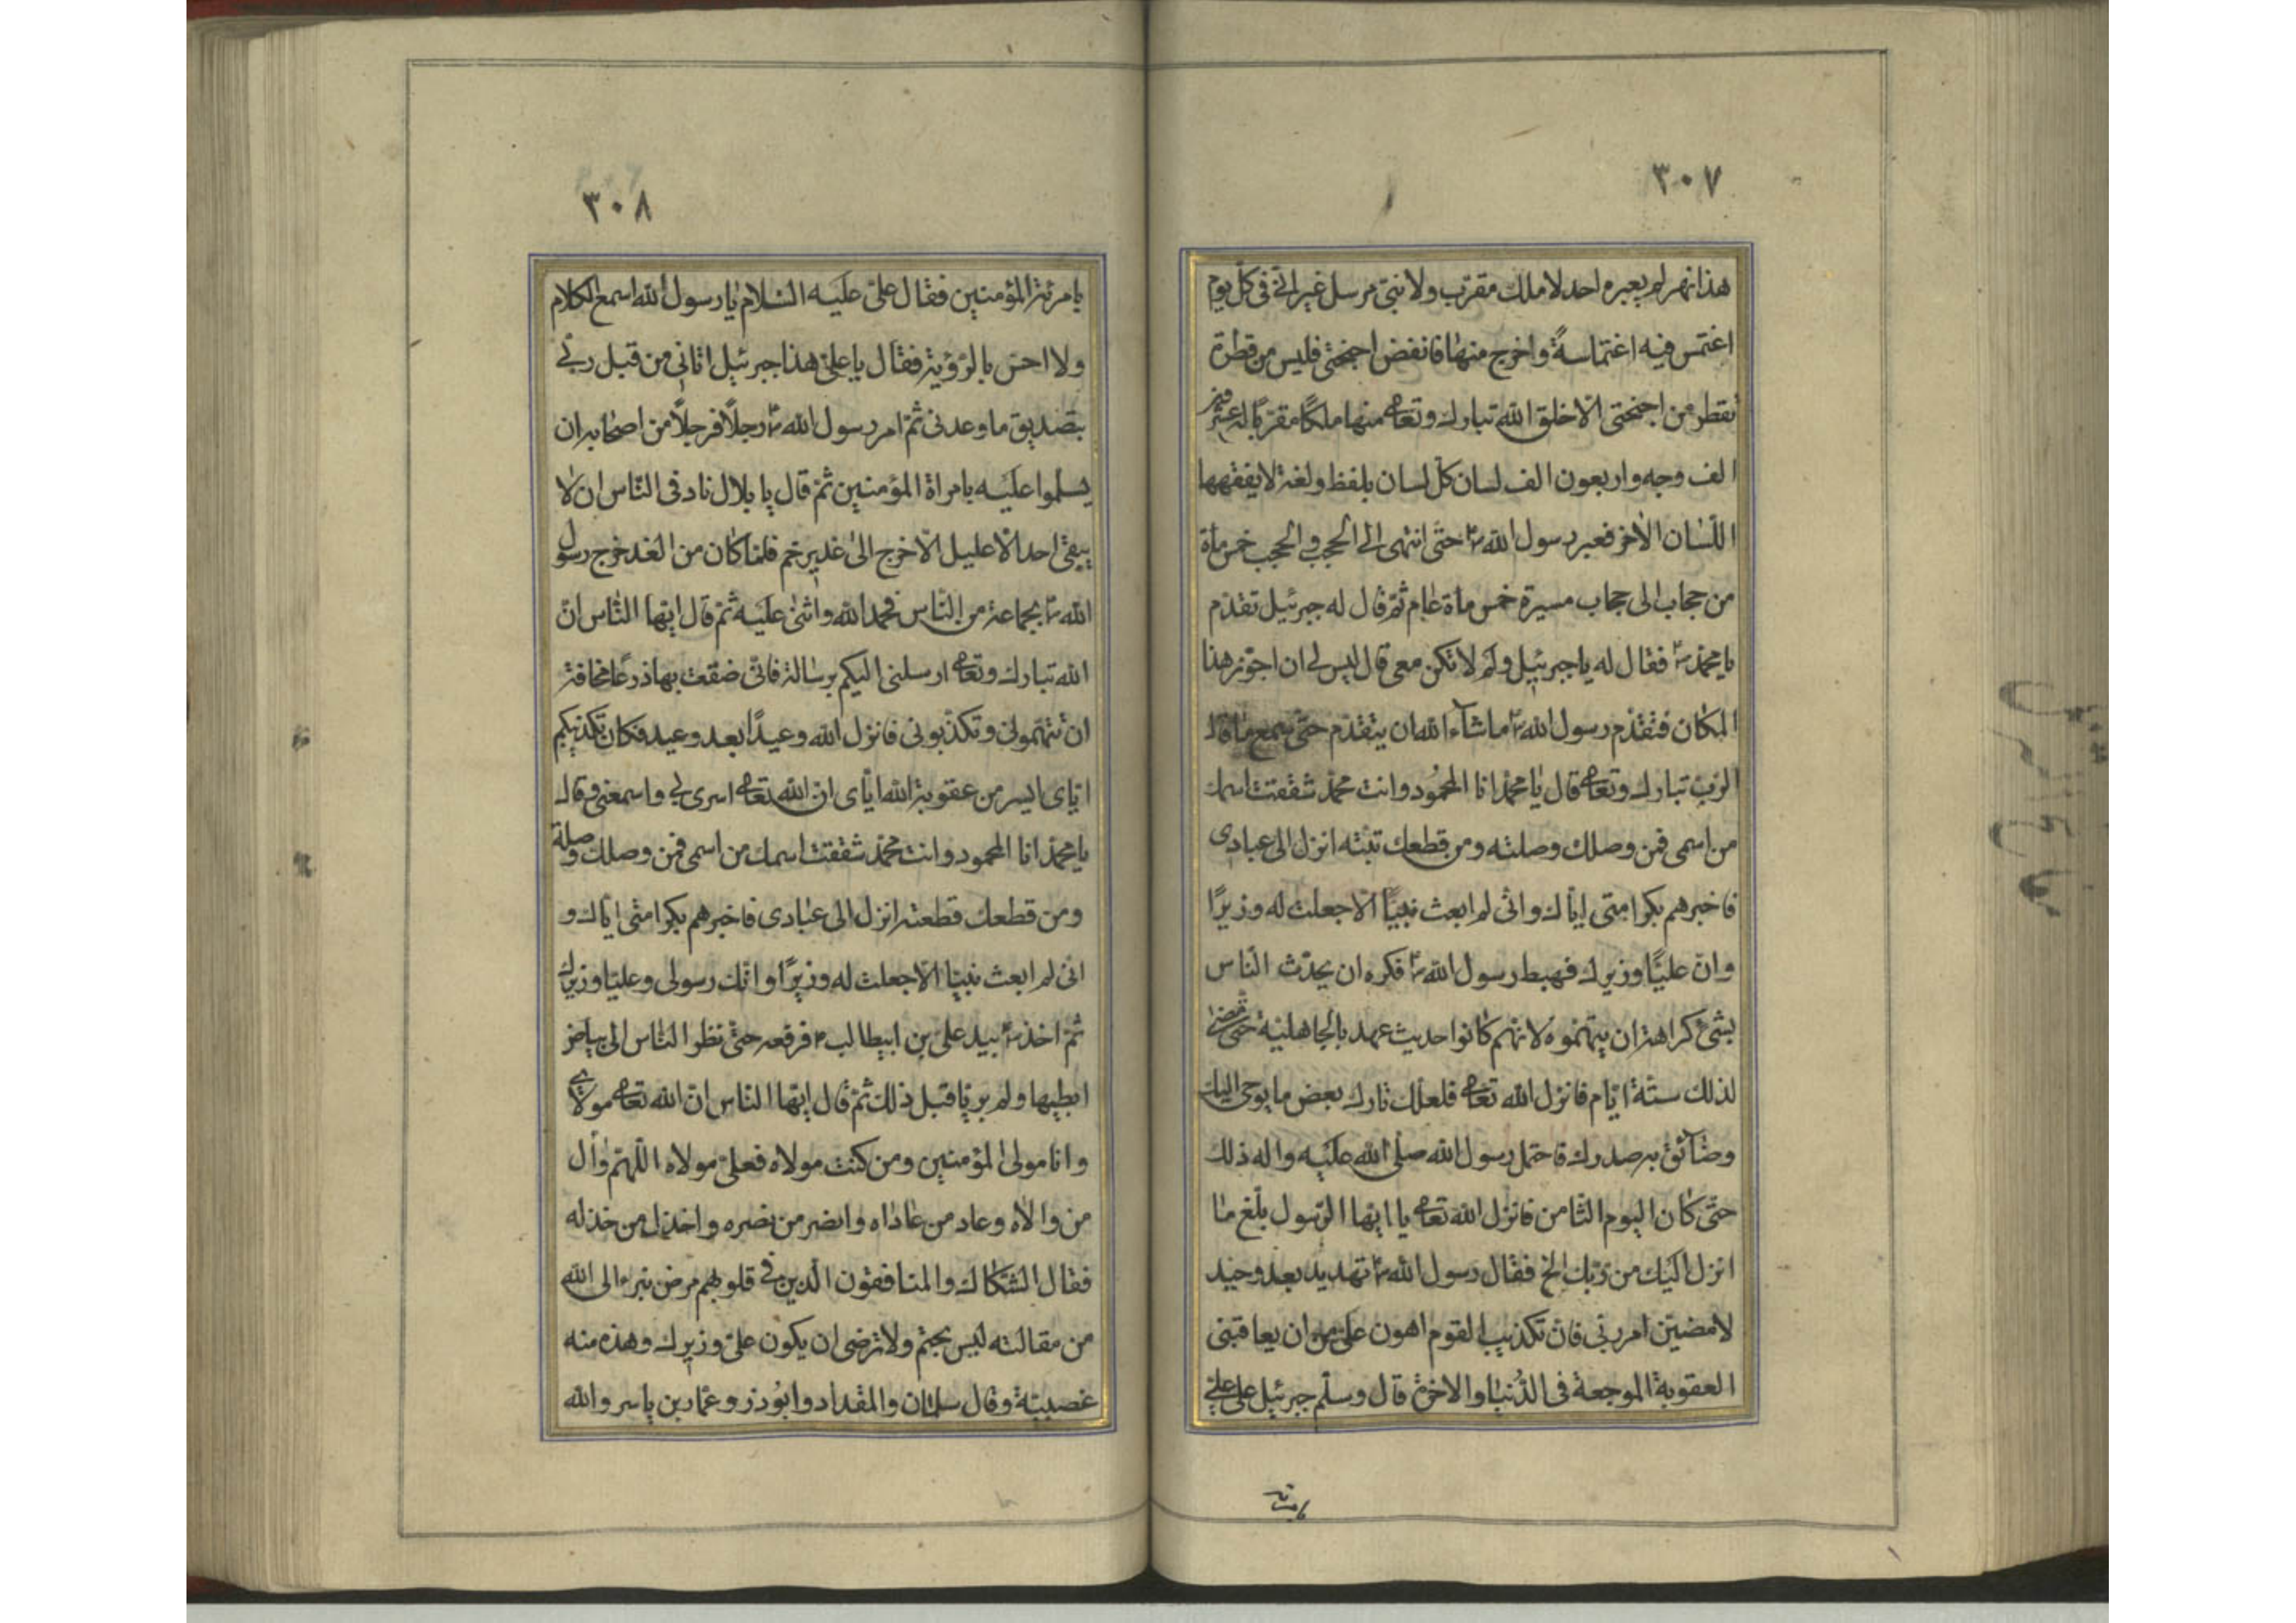 ٣٠٧
هذا نهر لم يعبره احد لا ملك مقرّب ولا نبىّ مرسل غير انّى فى كلّ يوم
اغتمس فيه اغتماسةً واخرج منها فانفض اجنحتى فليس من قطرة
تقطر من اجنحتى الّا خلق الله تبارك وتعالى منها ملكًا مقرّبًا له عشرون
الف وجه واربعون الف لسان كلّ لسان بلفظ ولغة لا يفقهها
اللّسان الاخر فعبر رسول الله ص حتّى انتهى الى الحجب والحجب خمس ماة
من حجاب الى حجاب مسيرة خمس ماة عام ثمّ قال له جبرئيل تقدّم
يا محمّد ص فقال له يا جبرئيل ولم لا تكن معى قال ليس لى ان اجوز هذا
المكان فتقدّم رسول الله ص ما شاء الله ان يتقدّم حتّى سمع ما قال
الربّ تبارك وتعالى قال يا محمّد انا المحمود وانت محمّد شققت اسمك
من اسمى فمن وصلك وصلته ومن قطعك تبتّه انزل الى عبادى
فاخبرهم بكرامتى ايّاك وانّى لم ابعث نبيًّا الّا جعلت له وزيرًا
وانّ عليًّا وزيرك فهبط رسول الله ص فكره ان يحدّث النّاس
بشئ كراهة ان يتهموه لانّهم كانوا حديث عهد بالجاهلية حتى مضى
لذلك ستّة ايّام فانزل الله تعالى فلعلّك تارك بعض ما يوحى اليك
وضائق به صدرك فاحتمل رسول الله صلى الله عليه واله ذلك
حتّى كان اليوم الثّامن فانزل الله تعالى يا ايها الرّسول بلّغ ما
انزل اليك من ربّك الخ فقال رسول الله ص تهديد بعد وعيد
لامضينّ امر ربّى فان تكذيب القوم اهون علىّ من ان يعاقبنى
العقوبة الموجعة فى الدّنيا والاخرة قال وسلّم جبرئيل على علىّ
بامرئة
٣٠٨
بامرئة المؤمنين فقال علىّ عليه السّلام يا رسول الله اسمع الكلام
ولا احسّ بالرّؤية فقال يا علىّ هذا جبرئيل اتانى من قبل ربّى
بتصديق ما وعدنى ثمّ امر رسول الله ص رجلًا فرجلًا من اصحابه ان
يسلّموا عليه بامراة المؤمنين ثمّ قال يا بلال ناد فى النّاس ان لا
يبقى احد الّا عليل الّا خرج الى غدير خم فلمّا كان من الغد خرج رسول
الله ص بجماعة من النّاس فحمد الله واثنى عليه ثمّ قال ايّها النّاس انّ
الله تبارك وتعالى ارسلنى اليكم برسالة فانّى ضقت بها ذرعًا مخافة
ان تتهمونى وتكذّبونى فانزل الله وعيدًا بعد وعيد فكان تكذيبكم
ايّاى ايسر من عقوبة الله ايّاى ان الله تعالى اسرى بى واسمعنى وقال
يا محمّد انا المحمود وانت محمّد شققت اسمك من اسمى فمن وصلك وصلته
ومن قطعك قطعته انزل الى عبادى فاخبرهم بكرامتى ايّاك و
انّى لم ابعث نبيا الّا جعلت له وزيرًا وانّك رسولى وعليّا وزيرك
ثمّ اخذ ص بيد علىّ بن ابيطالب ع فرفعه حتّى نظر النّاس الى بياض
ابطيها ولم ير قبل ذلك ثمّ قال ايّها النّاس انّ الله تعالى مولاى
وانا مولى المؤمنين ومن كنت مولاه فعلىّ مولاه اللّهمّ وال
من والاه وعاد من عاداه وانصر من نصره واخذل من خذله
فقال الشّكاك والمنافقون الّذين فى قلوبهم مرض نبرء الى الله
من مقالته ليس بحتم ولا نرضى ان يكون علىّ وزيرك وهذه منه
عصبيّة وقال سلمان والمقداد وابوذر وعمّار بن ياسر والله